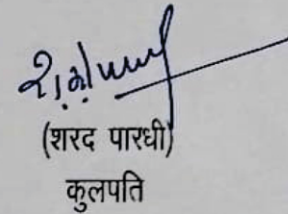 (शरद पारधी)
कुलपति